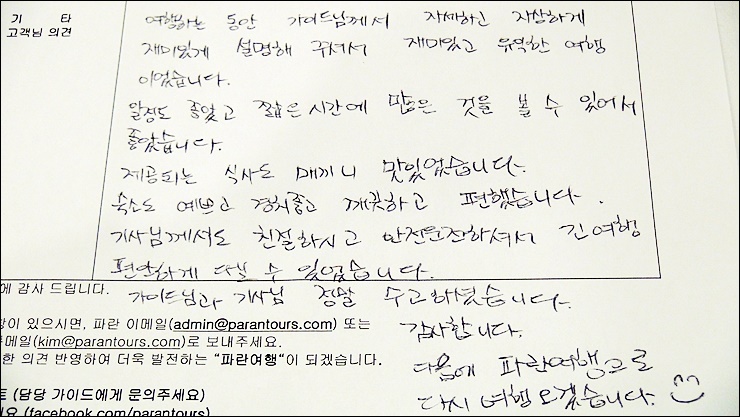 기 타
고객님 의견
여행하는 동안 가이드님께서 자세하신 자상하게
재미있게 설명해 주셔서 재미있고 유익한 여행
이었습니다.
일정도 좋았고 짧은 시간에 많은 것을 볼 수 있어서
좋았습니다.
제공되는 식사도 매끼니 맛있었습니다.
숙소도 예쁘고 경치좋고 깨끗하고 편했습니다.
기사님께서도 친절하시고 안전운전하셔서 긴여행
편안하게 다닐 수 있었습니다.
에 감사 드립니다.
가이드님과 기사님 정말 수고하셨습니다.
감사합니다.
이 있으시면, 파란 이메일(admin@parantours.com) 또는
메일(kim@parantours.com)로 보내주세요.
한 의견 반영하여 더욱 발전하는 "파란여행"이 되겠습니다.
다음에 파란여행으로
다시 여행 오겠습니다.
트 (담당 가이드에게 문의주세요)
요 (facebook.com/parantours)